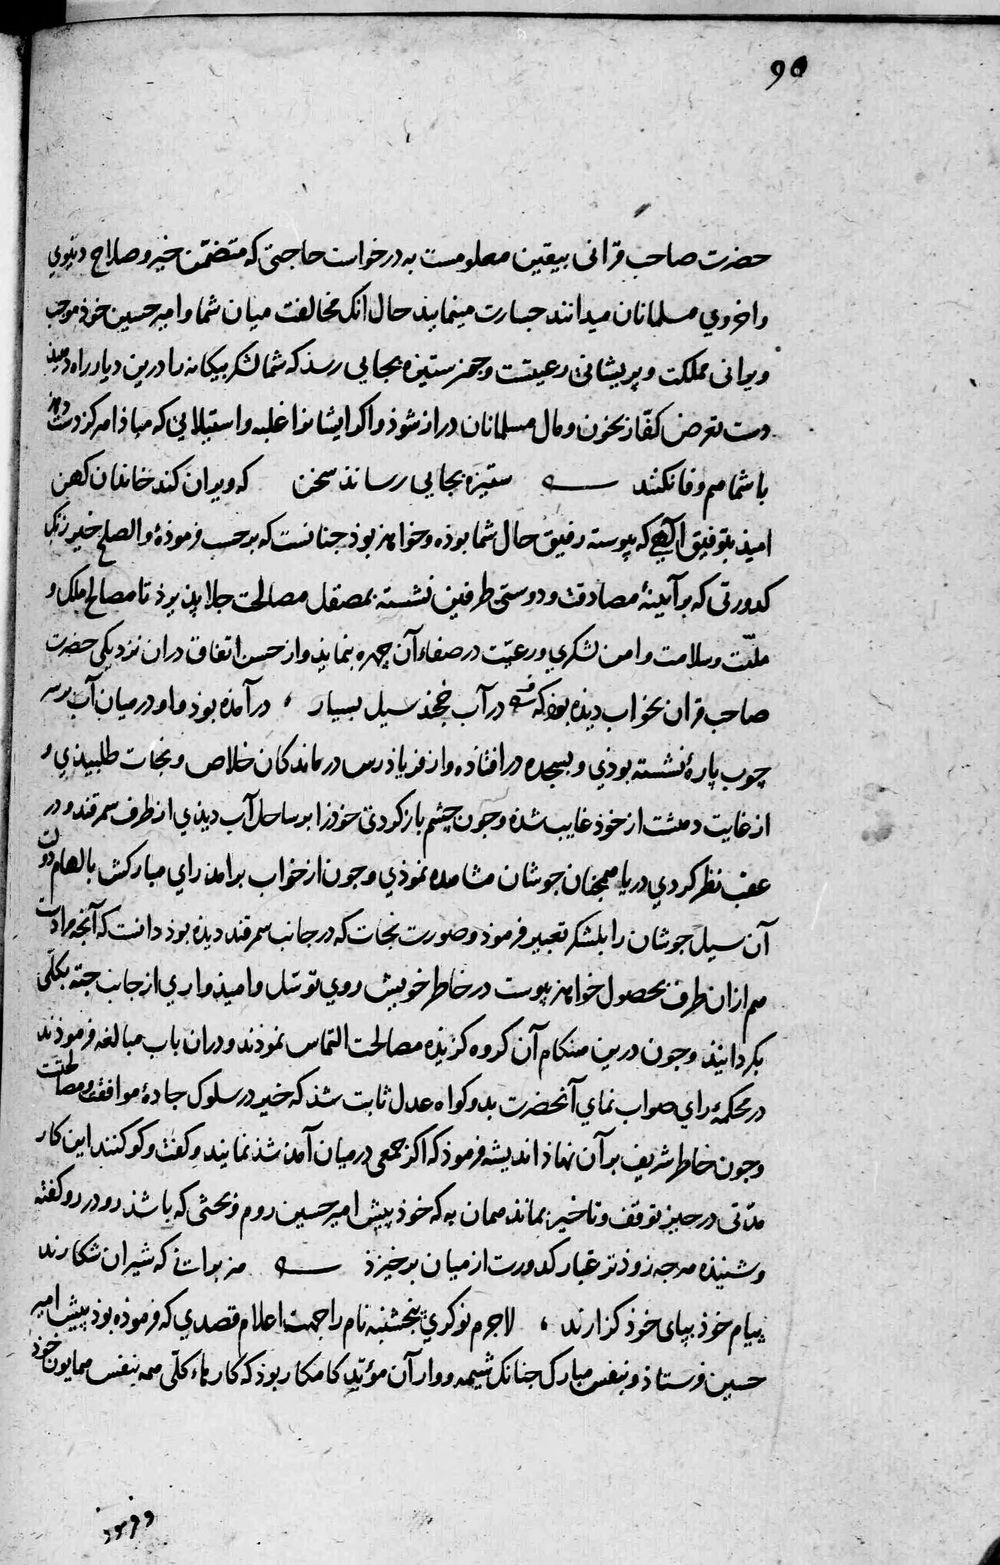 90
حضرت صاحب قرانی بیقین معلومست به درخواست حاجتی که متضمّن خیر و صلاح دنیوي
و اخروي مسلمانان میدانند جسارت مینمایند حال انک مخالفت میان شما و امیر حسین خوذ موجب
ویرانی مملکت و پریشانی رعیتست و جمر ستیزه بجایی رسذ که شما لشکر بیکانه را درین دیار راه دهیذ
دست تعرض کفّار بخون و مال مسلمانان دراز شوذ و اکر ایشانرا غلبه و استیلایی که مباذ هرکز دست دهذ
با شما هم وفا نکنند ستیزه بجایی رساند سخن که ویران کند خاندان کهن
امیذ بتوفیق الهی که پیوسته رفیق حال شما بوذه و خواهذ بوذ جنانست که برحسب فرموذهٔ والصلح خیر زنک
کدورتی که بر آیینهٔ مصادقت و دوستی طرفین نشسته بمصقل مصالحت جلا پذیرذ تا مصالح ملک و
ملّت و سلامت و امن لشکري و رعیّت در صفاء آن چهره بنماید و از حسن اتفاق دران نزدیکی حضرت
صاحب قران بخواب دیذه بوذ که در آب خجند سیل بسیار ، درآمذه بوذ و او در میان آب بر سر
چوب پارهٔ نشسته بوذي و بسجده درافتاذه و از فریاذرس درماندکان خلاص و نجات طلبیدي و
از غایت دهشت از خوذ غایب شذه و جون چشم باز کردي خوذرا بر ساحل آب دیذي از طرف سمرقند و در
عقب نظر کردي دریا همجنان جوشان مشاهده نموذي و جون از خواب برامذ راي مبارکش بالهام دولت
آن سیل جوشان را بلشکر تعبیر فرموذ و صورت نجات که در جانب سمرقند دیذه بوذ دانست که آنچه مرادست
هم ازان طرف بحصول خواهذ پیوست در خاطر خویش روي توسّل و امیذواري از جانب جته بکلّی
بکردانیذ و جون درین هنکام آن کروه کزیذه مصالحت التماس نموذند و دران باب مبالغه فرموذند
در محکمهٔ راي صواب نماي آنحضرت بدو کواه عدل ثابت شذ که خیر در سلوک جادهٔ موافقت و مصالحتست
و جون خاطر شریف بر آن نهاذ اندیشه فرموذ که اکر جمعی درمیان آمذ شذ نمایند و کفت و کو کنند این کار
مدّتی در حیز توقف و تاخیر بماند همان به که خوذ پیش امیر حسین روم و بحثی که باشذ رو در رو کفته
و شنیذه هرجه زوذتر غبار کدورت از میان برخیزذ هزبرانی که شیران شکارند
پیام خوذ بپای خوذ کزارند ، لاجرم نوکري پنجشنبه نام را جهت اعلام قصدي که فرموذه بوذ پیش امیر
حسین فرستاذ و بنفس مبارک جنانک شیمه و وار آن مؤیّد کامکار بوذ که کارهاء کلّی همه بنفس همایون خوذ